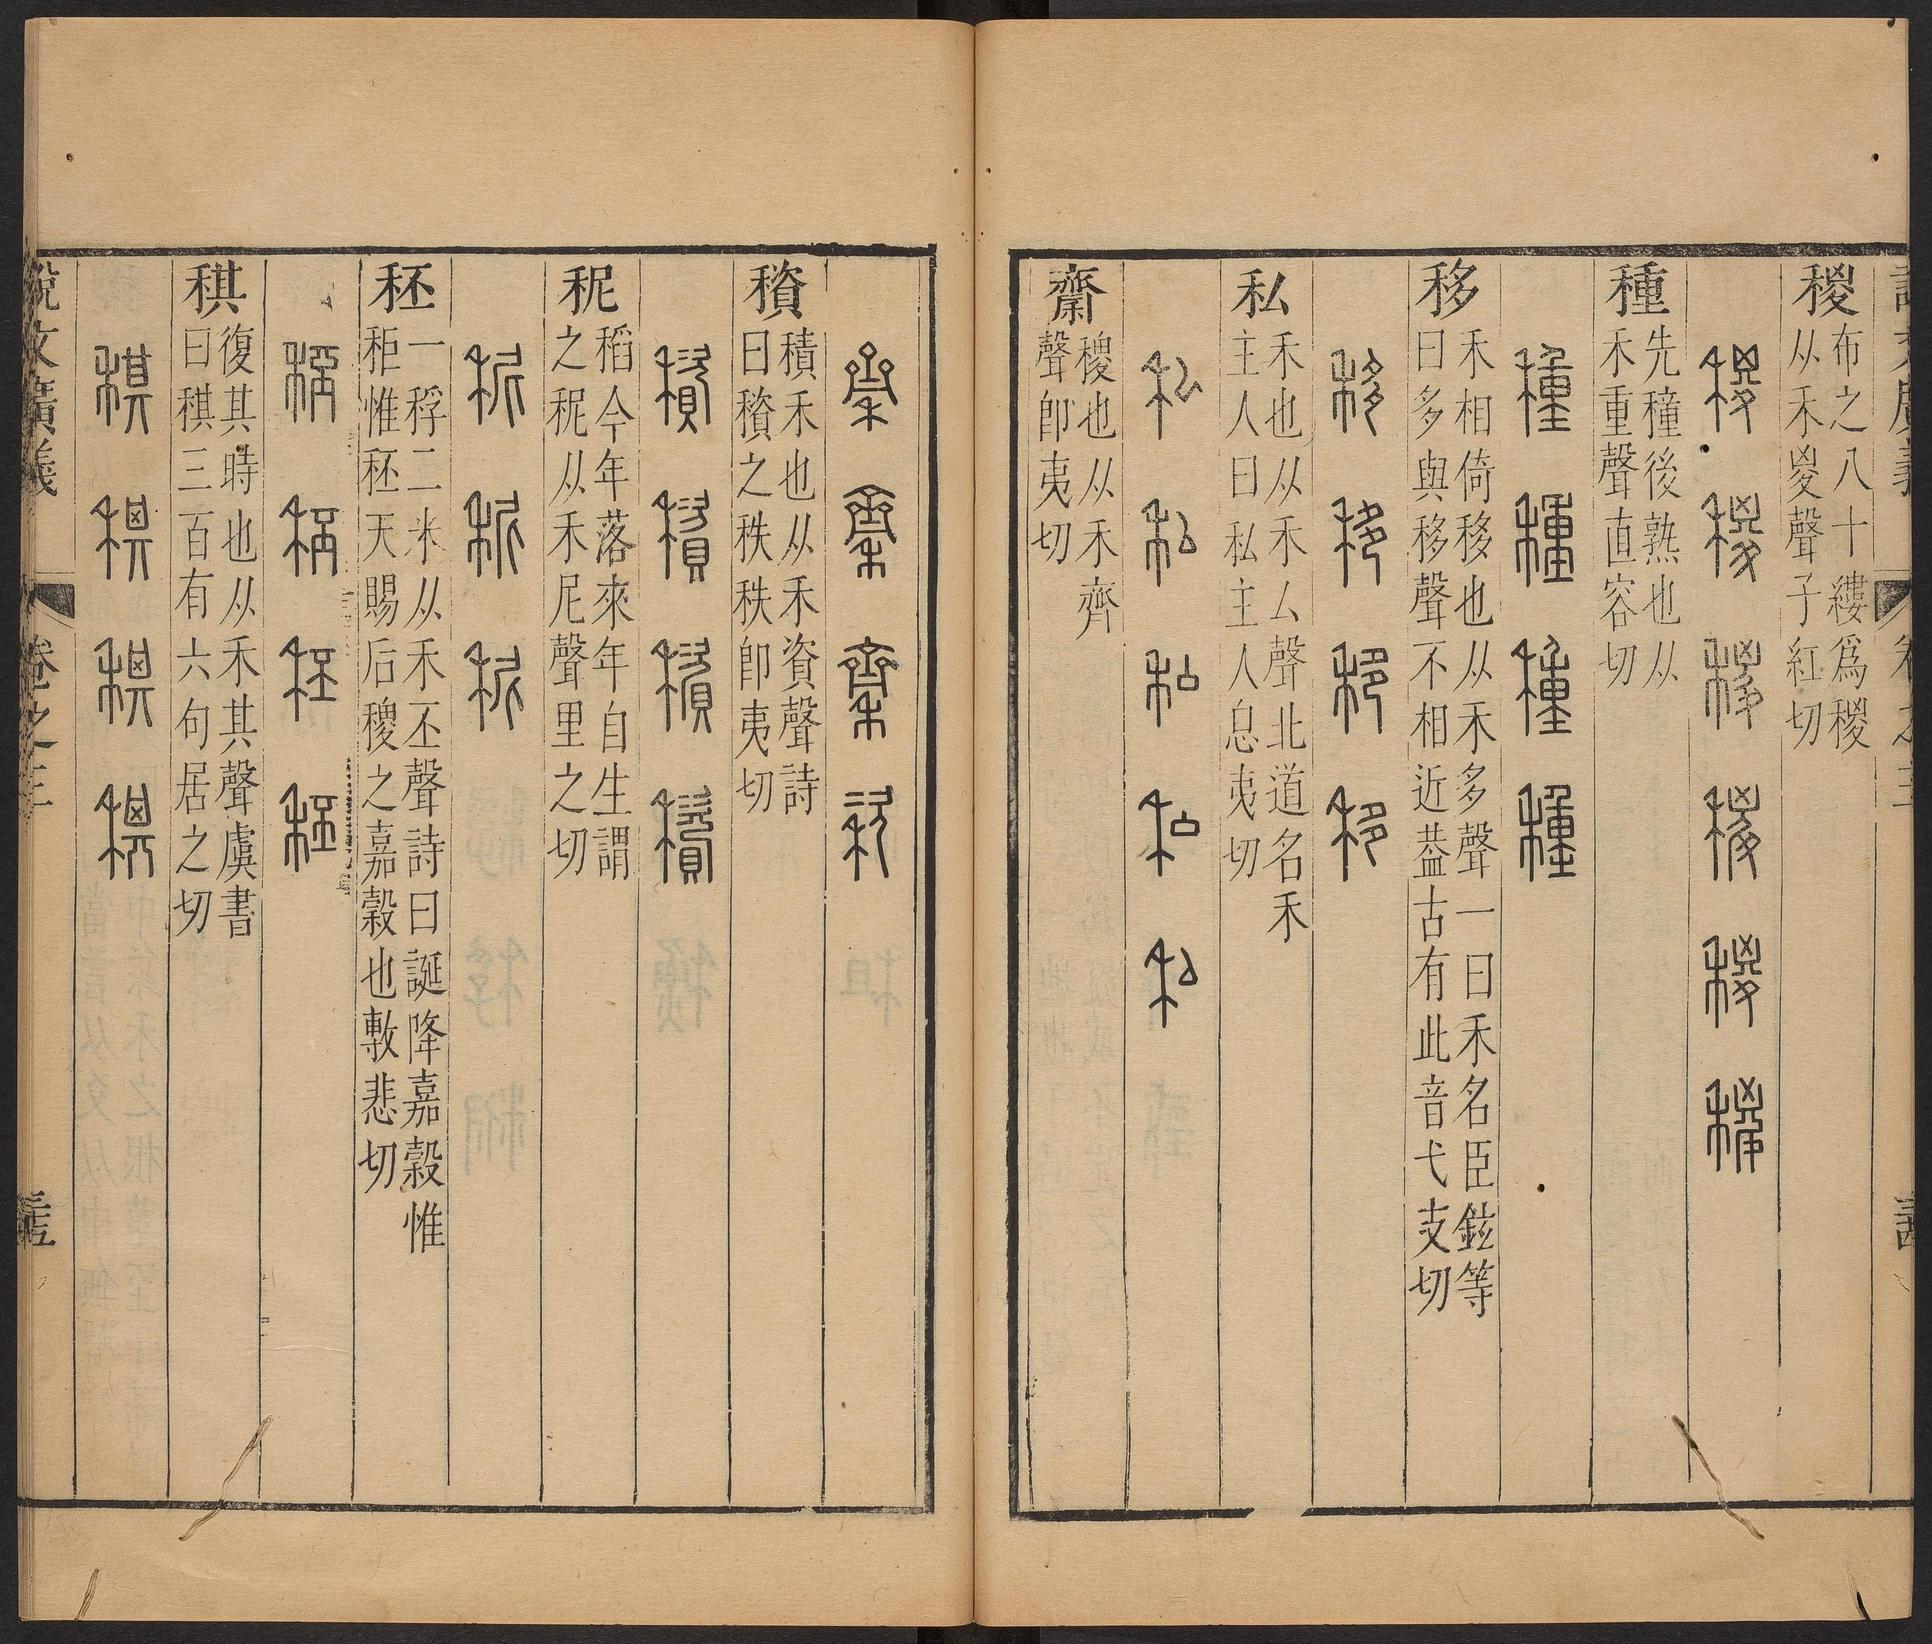 說文廣義 卷之三 三四
稯 布之八十縷爲稯
从禾㚇聲子紅切
稯 稯 稯 稯 稯 稯
種 先穜後熟也从
禾重聲直容切
種 種 種 種
移 禾相倚移也从禾多聲一曰禾名臣鉉等
曰多與移聲不相近葢古有此音弋支切
移 移 移 移
私 禾也从禾厶聲北道名禾
主人曰私主人息夷切
私 私 私 私 私
𪗉 稷也从禾齊
聲卽夷切
𪗉 𪗉 𪗉 𪗉
䆅 積禾也从禾資聲詩
曰䆅之秩秩卽夷切
䆅 䆅 䆅 䆅
秜 稻今年落來年自生謂
之秜从禾尼聲里之切
秜 秜 秜
秠 一稃二米从禾丕聲詩曰誕降嘉穀惟
秬惟秠天賜后稷之嘉穀也敷悲切
秠 秠 秠 秠
稘 復其時也从禾其聲虞書
曰稘三百有六旬居之切
稘 稘 稘 稘
說文廣義 卷之三 三五